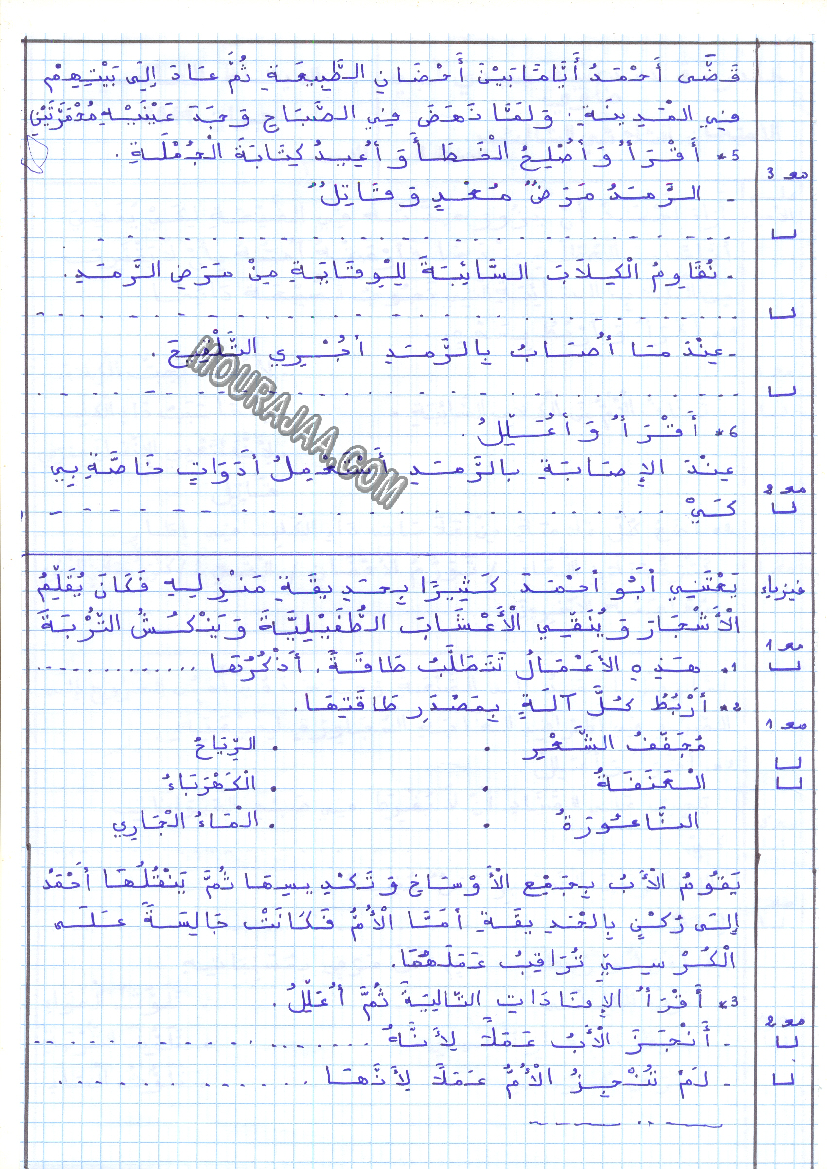 قَضَّى أَحْمَدُ أَيَّامًا بَيْنَ أَحْضَانِ الطَّبِيعَةِ ثُمَّ عَادَ إِلَى بَيْتِهِمْ
فِي الْمَدِينَةِ. وَ لَمَّا نَهَضَ فِي الصَّبَاحِ وَجَدَ عَيْنَيْهِ مُحْمَرَّتَيْنِ
5* أَقْرَأُ وَ أُصْلِحُ الْخَطَأَ وَ أُعِيدُ كِتَابَةَ الْجُمْلَةِ.
مع 3
- الرَّمَدُ مَرَضٌ مُعْدٍ وَ قَاتِلٌ
- نُقَاوِمُ الْكِلَابَ السَّائِبَةَ لِلْوِقَايَةِ مِنْ مَرَضِ الرَّمَدِ.
- عِنْدَ مَا أُصَابُ بِالرَّمَدِ أُجْرِي التَّلْقِيحَ.
6* أَقْرَأُ وَ أُعَلِّلُ
عِنْدَ الإِصَابَةِ بِالرَّمَدِ أَسْتَعْمِلُ أَدَوَاتٍ خَاصَّةِ بِي
مع 2
كَيْ
فيزياء
يَعْتَنِي أَبُو أَحْمَدَ كَثِيرًا بِحَدِيقَةِ مَنْزِلِهِ فَكَانَ يُقَلِّمُ
الْأَشْجَارَ وَ يُنَقِّي الْأَعْشَابَ الطُّفَيْلِيَّةَ وَ يَنْكُشُ التُّرْبَةَ
مع 1
1* هَذِهِ الْأَعْمَالُ تَتَطَلَّبُ طَاقَةً. أَذْكُرُهَا
2* أَرْبُطُ كُلَّ آلَةٍ بِمَصْدَرِ طَاقَتِهَا.
مع 1
مُجَفِّفُ الشَّعْرِ • • الرِّيَاحُ
الْعَنَفَةُ • • الْكَهْرَبَاءُ
النَّاعُورَةُ • • الْمَاءُ الْجَارِي
يَقُومُ الْأَبُ بِجَمْعِ الْأَوْسَاخِ وَ تَكْدِيسِهَا ثُمَّ يَنْقُلُهَا أَحْمَدُ
إِلَى رُكْنٍ بِالْحَدِيقَةِ أَمَّا الْأُمُّ فَكَانَتْ جَالِسَةً عَلَى
الْكُرْسِيِّ تُرَاقِبُ عَمَلَهُمَا.
3* أَقْرَأُ الإِفَادَاتِ التَّالِيَةَ ثُمَّ أُعَلِّلُ.
مع 2
- أَنْجَزَ الْأَبُ عَمَلًا لِأَنَّهُ
- لَمْ تُنْجِزُ الْأُمُّ عَمَلًا لِأَنَّهَا
MOURAJAA.COM